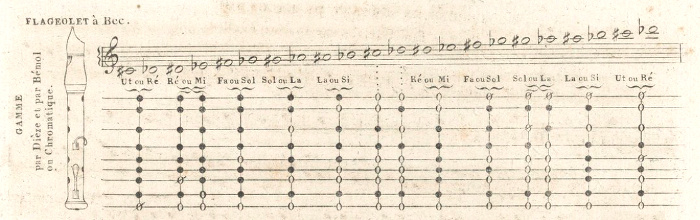 FLAGEOLET à Bec.
GAMME
par Dièze et par Bémol
ou Chromatique.
Ut ou Ré Ré ou Mi Fa ou Sol Sol ou La La ou Si Ré ou Mi Fa ou Sol Sol ou La La ou Si Ut ou Ré